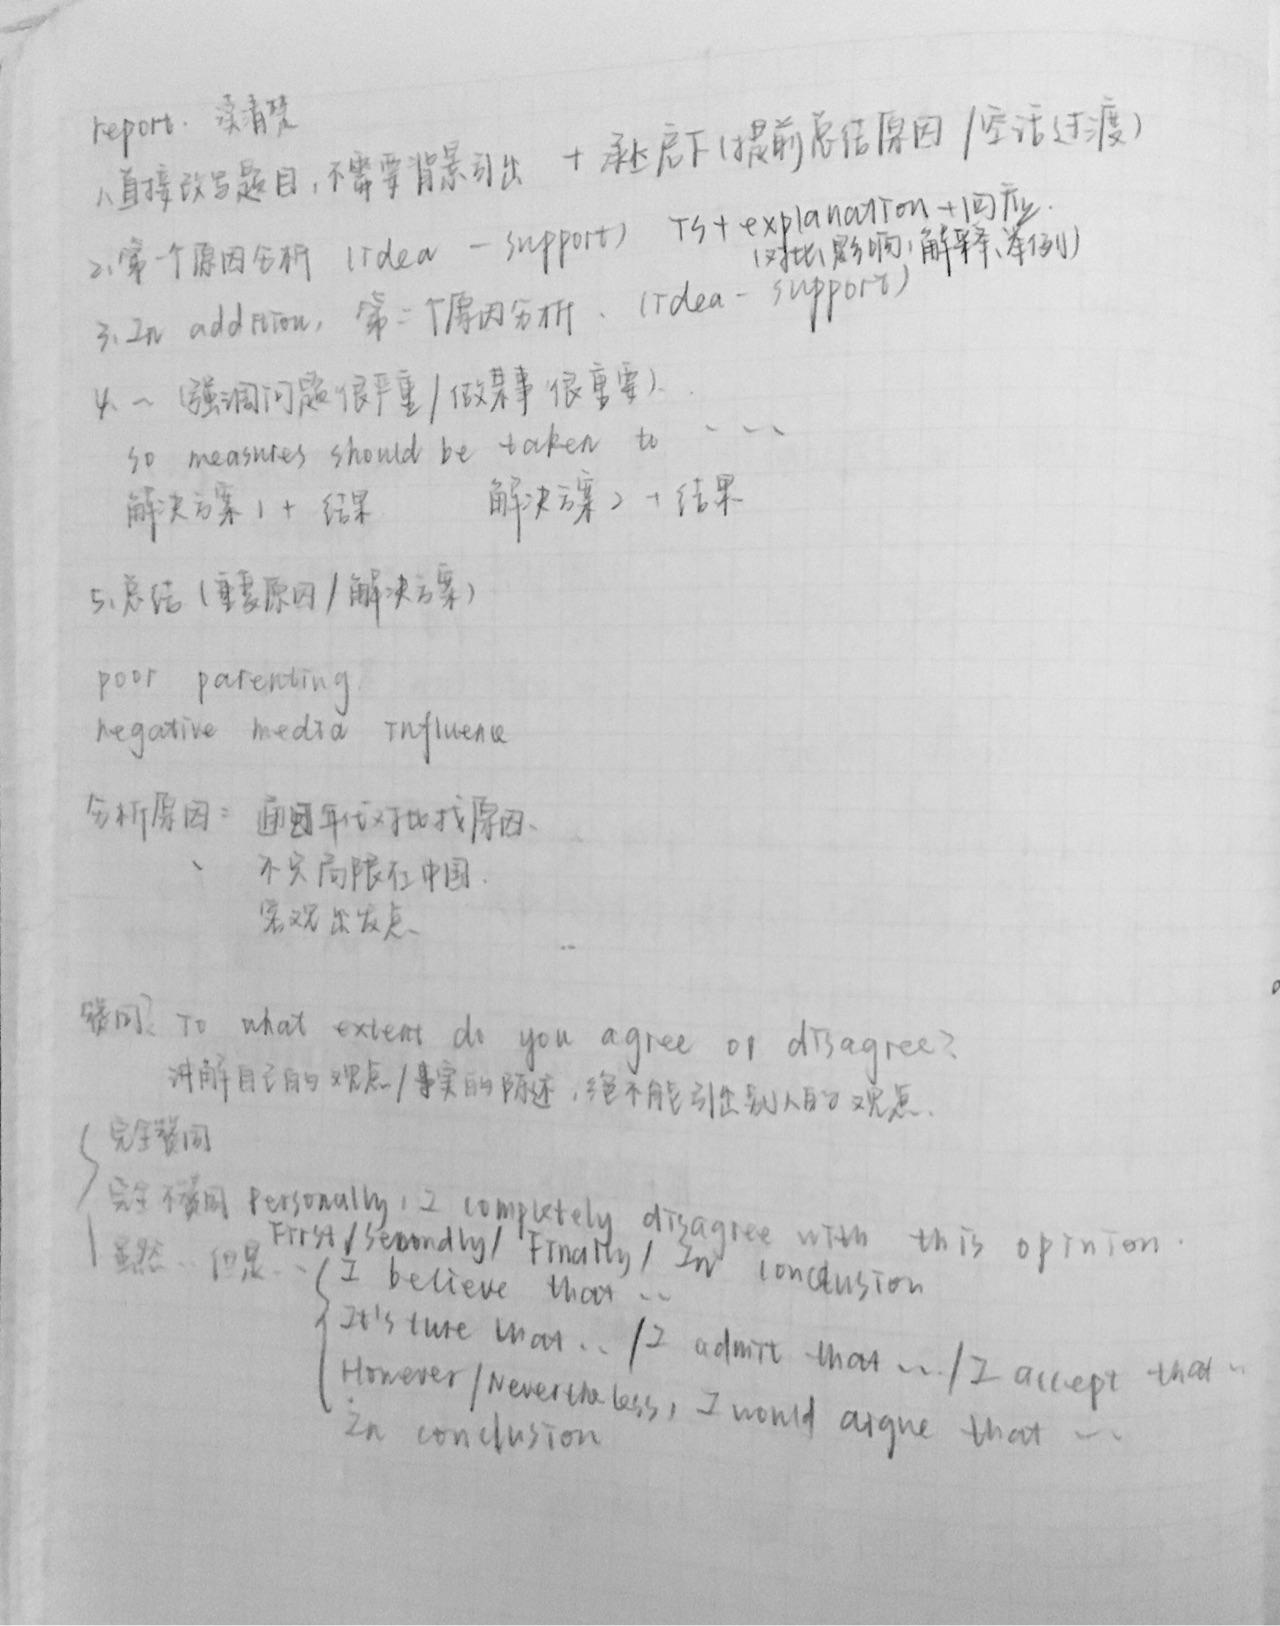 report. 读清楚
1、直接改写题目，不需要背景引出 + 承上启下（提前总结原因/空话过渡）
2、第一个原因分析 (idea - support) TS + explanation + 回应.
（对比、影响、解释、举例）
3、In addition, 第二个原因分析. (idea - support)
4、～（强调问题很严重/做某事很重要）.
so measures should be taken to ....
解决方案1 + 结果 解决方案2 + 结果
5、总结（重要原因/解决方案）
poor parenting
negative media influence
分析原因: 通过年代对比找原因、
不只局限在中国.
客观出发点、
赞同? To what extent do you agree or disagree?
讲解自己的观点/事实的陈述，绝不能引出别人的观点.
完全赞同
完全不赞同 Personally, I completely disagree with this opinion.
First/Secondly/ Finally/ In conclusion
虽然... 但是...
I believe that ...
It's ture that ... / I admit that ... / I accept that ..
However/Nevertheless, I would argue that ...
In conclusion